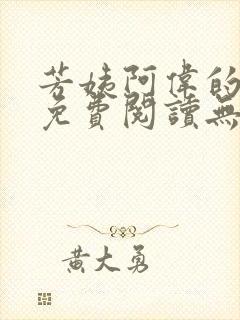 芳姨阿偉的
免費閱讀無
黃大勇